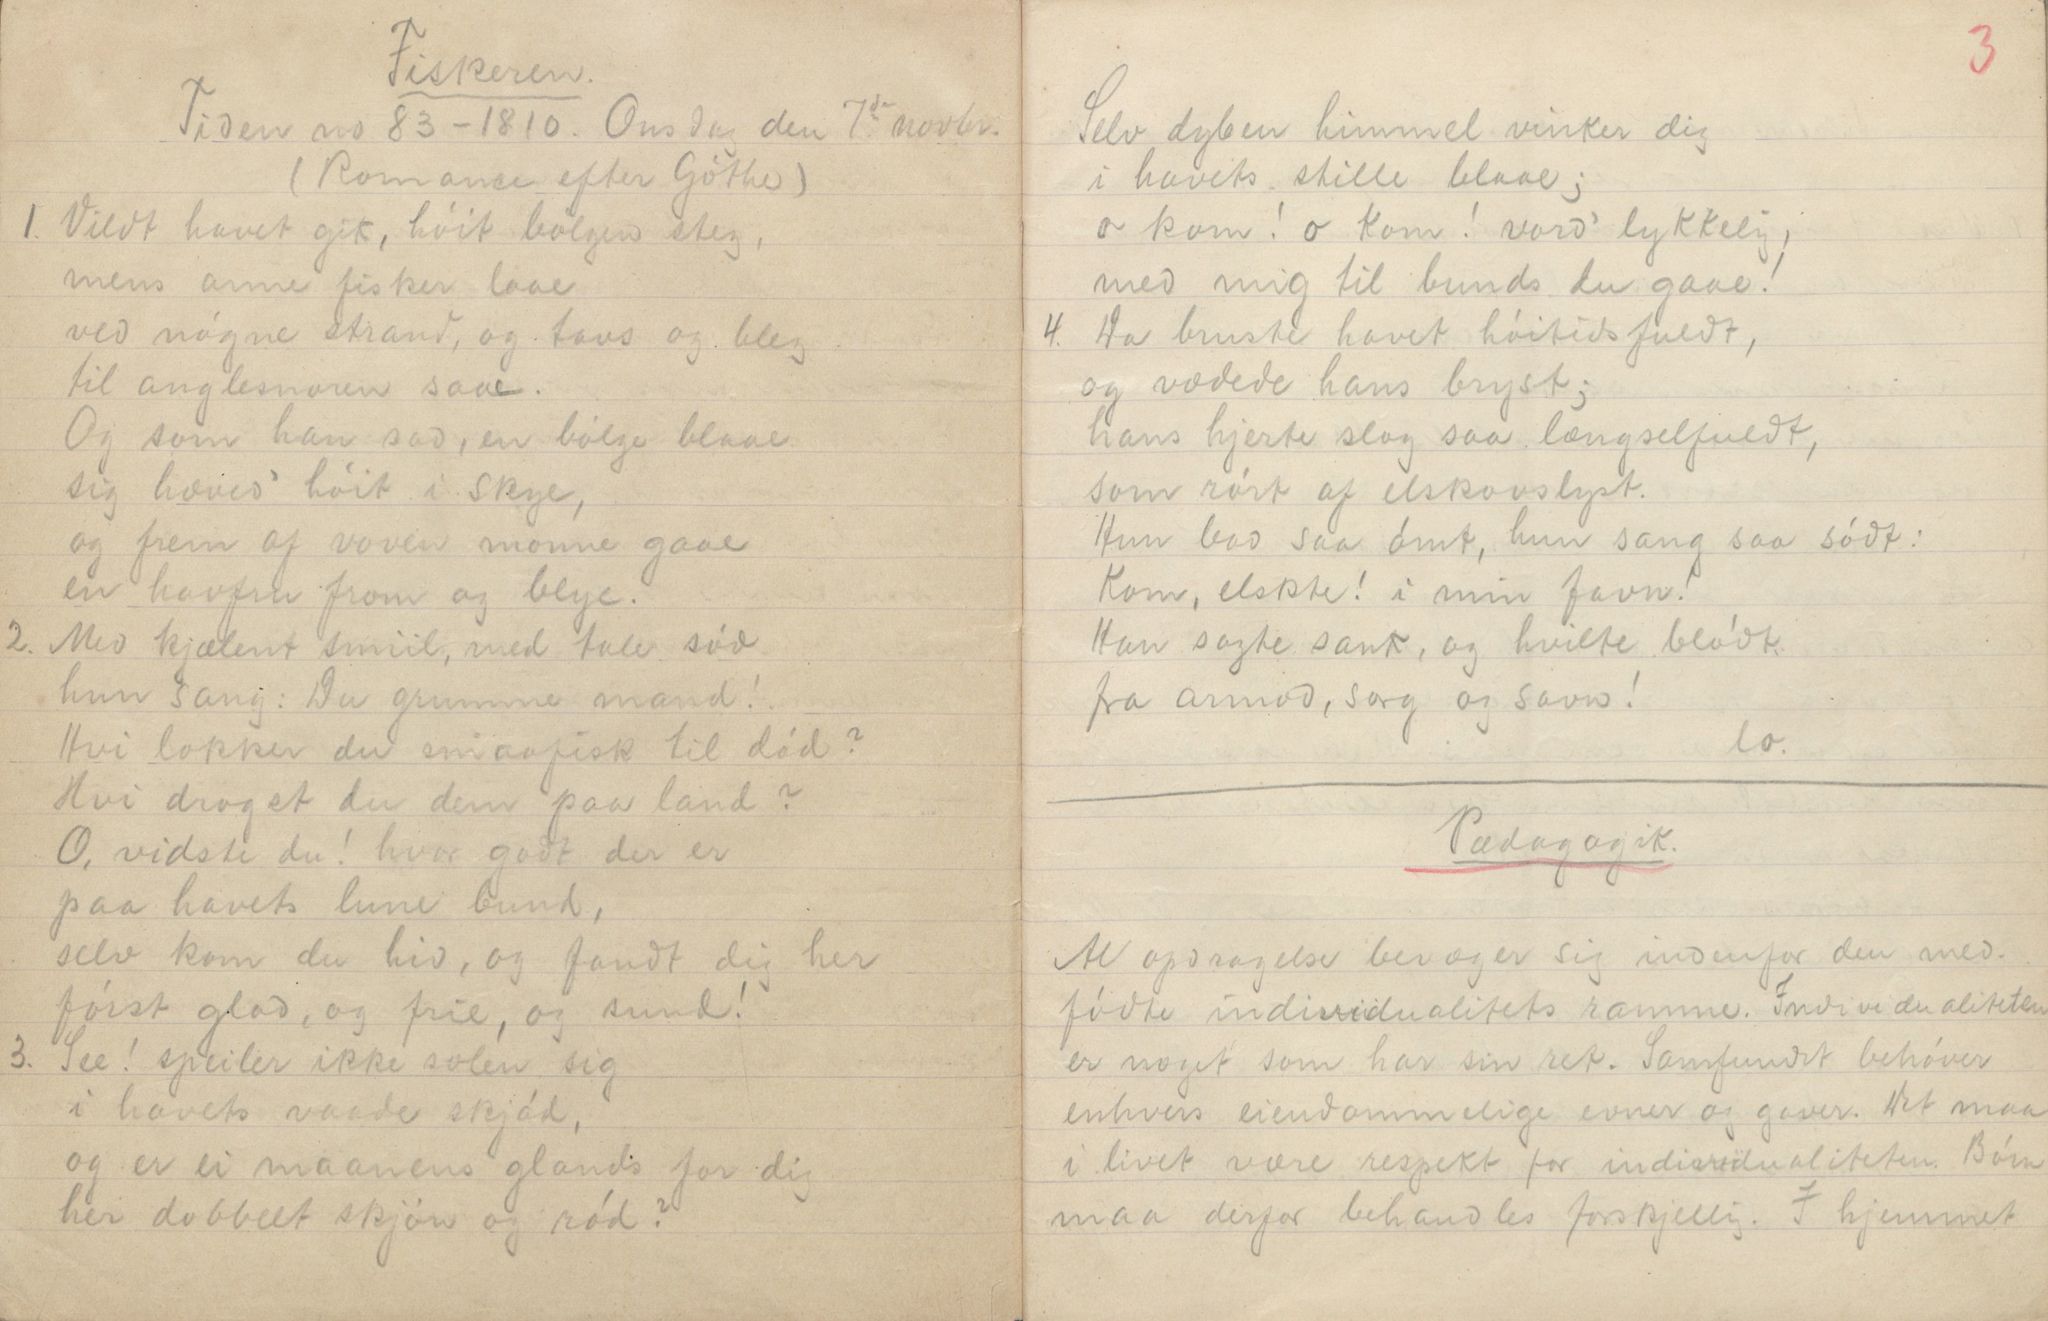 Fiskeren.
Tiden no 83 - 1810. Onsdag den 7de novbr.
(Romance efter Göthe)
1. Vildt havet gik, höit bölgen steg,
mens arme fisker laae
ved nögne strand, og taus og bleg
til anglesnoren saae.
Og som han sad, en bölge blaae
sig hæved' höit i skye,
og frem af voven monne gaae
en havfru from og blye.
2. Med kjælent smiil, med tale söd
hun sang: Du grumme mand!
Hvi lokker du smaafisk til död?
Hvi draget du dem paa land?
O, vidste du! hvor godt der er
paa havets lune bund,
selv kom du hid, og fandt dig her
först glad, og frie, og sund!
3. See! speiler ikke solen sig
i havets vaade skjöd,
og er ei maanens glands for dig
her dobbelt skjön og röd?
3
Selv dyben himmel vinker dig
i havets stille blaae;
o kom! o kom! vord' lykkelig,
med mig til bunds du gaae!
4. Da bruste havet höitidsfuldt,
og vædede hans bryst;
hans hjerte slog saa længselfuldt,
som rört af elskovslyst.
Hun bad saa ömt, hun sang saa södt:
Kom, elskte! i min favn!
Han sagte sank, og hvilte blödt
fra armod, sorg og savn!
lo.
Pædagogik.
Al opdragelse bevæger sig indenfor den med-
födte individualitets ramme. Individualiteten
er noget som har sin ret. Samfundet behöver
enhvers eiendommelige evner og gaver. Det maa
i livet være respekt for individualiteten. Börn
maa derfor behandles forskjellig. I hjemmet